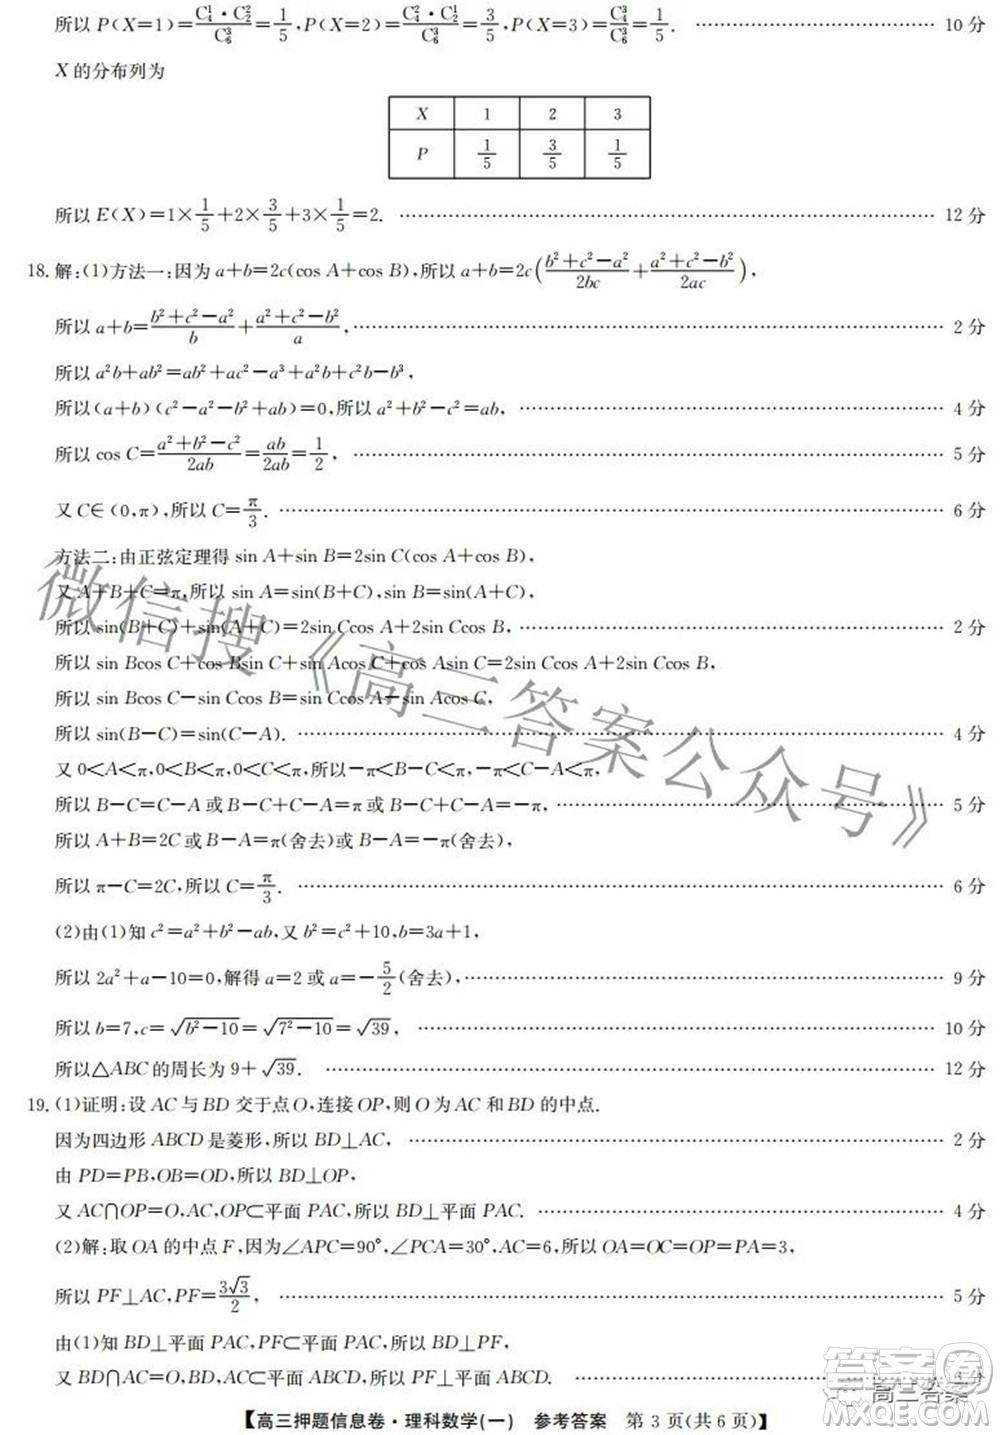 所以 P(X=1)=C₄¹·C₂²/C₆³=1/5,P(X=2)=C₄²·C₂¹/C₆³=3/5,P(X=3)=C₄³/C₆³=1/5. …… 10 分
X 的分布列为
X 1 2 3
P 1/5 3/5 1/5
所以 E(X)=1×1/5+2×3/5+3×1/5=2. …… 12 分
18.解:(1)方法一:因为 a+b=2c(cos A+cos B),所以 a+b=2c((b²+c²-a²)/2bc+(a²+c²-b²)/2ac),
所以 a+b=(b²+c²-a²)/b+(a²+c²-b²)/a, …… 2 分
所以 a²b+ab²=ab²+ac²-a³+a²b+bc²-b³,
所以(a+b)(c²-a²-b²+ab)=0,所以 a²+b²-c²=ab, …… 4 分
所以 cos C=(a²+b²-c²)/2ab=ab/2ab=1/2, …… 5 分
又 C∈(0,π),所以 C=π/3. …… 6 分
方法二:由正弦定理得 sin A+sin B=2sin C(cos A+cos B),
又 A+B+C=π,所以 sin A=sin(B+C),sin B=sin(A+C),
所以 sin(B+C)+sin(A+C)=2sin Ccos A+2sin Ccos B, …… 2 分
所以 sin Bcos C+cos Bsin C+sin Acos C+cos Asin C=2sin Ccos A+2sin Ccos B,
所以 sin Bcos C-sin Ccos B=sin Ccos A-sin Acos C,
所以 sin(B-C)=sin(C-A). …… 4 分
又 0<A<π,0<B<π,0<C<π,所以-π<B-C<π,-π<C-A<π,
所以 B-C=C-A 或 B-C+C-A=π 或 B-C+C-A=-π, …… 5 分
所以 A+B=2C 或 B-A=π(舍去)或 B-A=-π(舍去),
所以 π-C=2C,所以 C=π/3. …… 6 分
(2)由(1)知 c²=a²+b²-ab,又 b²=c²+10,b=3a+1,
所以 2a²+a-10=0,解得 a=2 或 a=-5/2(舍去), …… 9 分
所以 b=7,c=√(b²-10)=√(7²-10)=√39, …… 10 分
所以△ABC 的周长为 9+√39. …… 12 分
19.(1)证明:设 AC 与 BD 交于点 O,连接 OP,则 O 为 AC 和 BD 的中点.
因为四边形 ABCD 是菱形,所以 BD⊥AC, …… 2 分
由 PD=PB,OB=OD,所以 BD⊥OP,
又 AC∩OP=O,AC,OP⊂平面 PAC,所以 BD⊥平面 PAC. …… 4 分
(2)解:取 OA 的中点 F,因为∠APC=90°,∠PCA=30°,AC=6,所以 OA=OC=OP=PA=3,
所以 PF⊥AC,PF=3√3/2, …… 5 分
由(1)知 BD⊥平面 PAC,PF⊂平面 PAC,所以 BD⊥PF,
又 BD∩AC=O,BD,AC⊂平面 ABCD,所以 PF⊥平面 ABCD. …… 分
【高三押题信息卷·理科数学(一) 参考答案 第 3 页(共 6 页)】
微信搜《高三答案公众号》
答案圈
高三答案